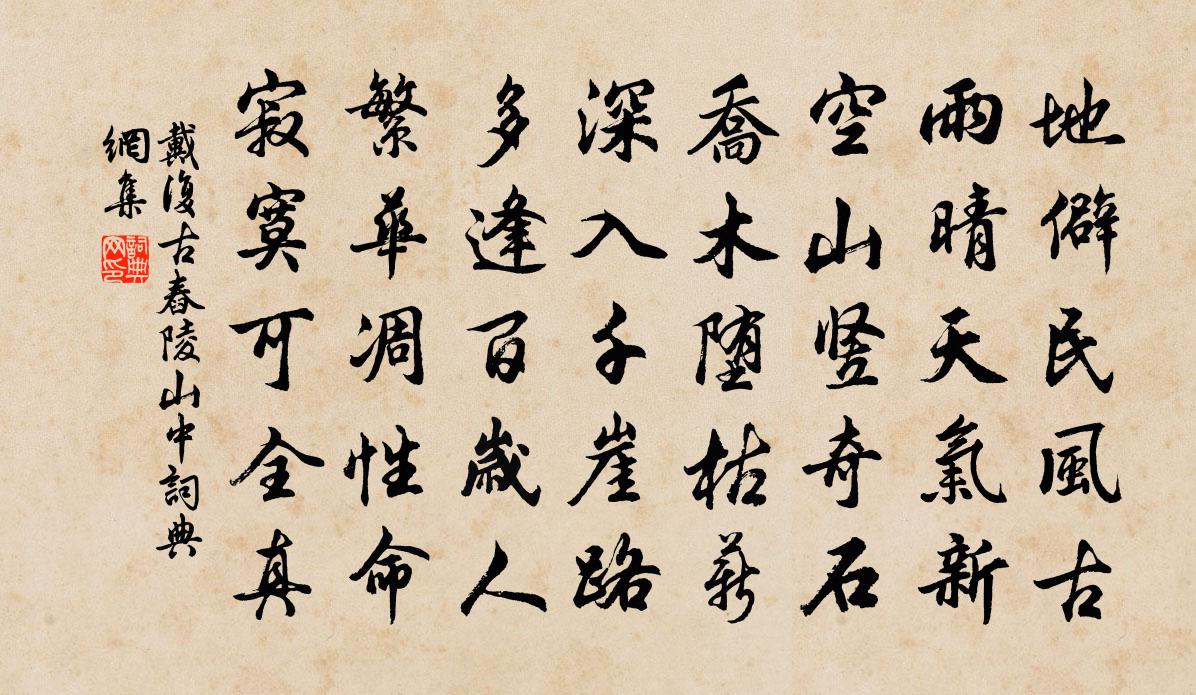 地僻民風古
雨晴天氣新
空山竖奇石
喬木堕枯薪
深入千崖路
多逢百歲人
繁華凋性命
寂寞可全真
戴復古舂陵山中詞典
網集
詞典网印